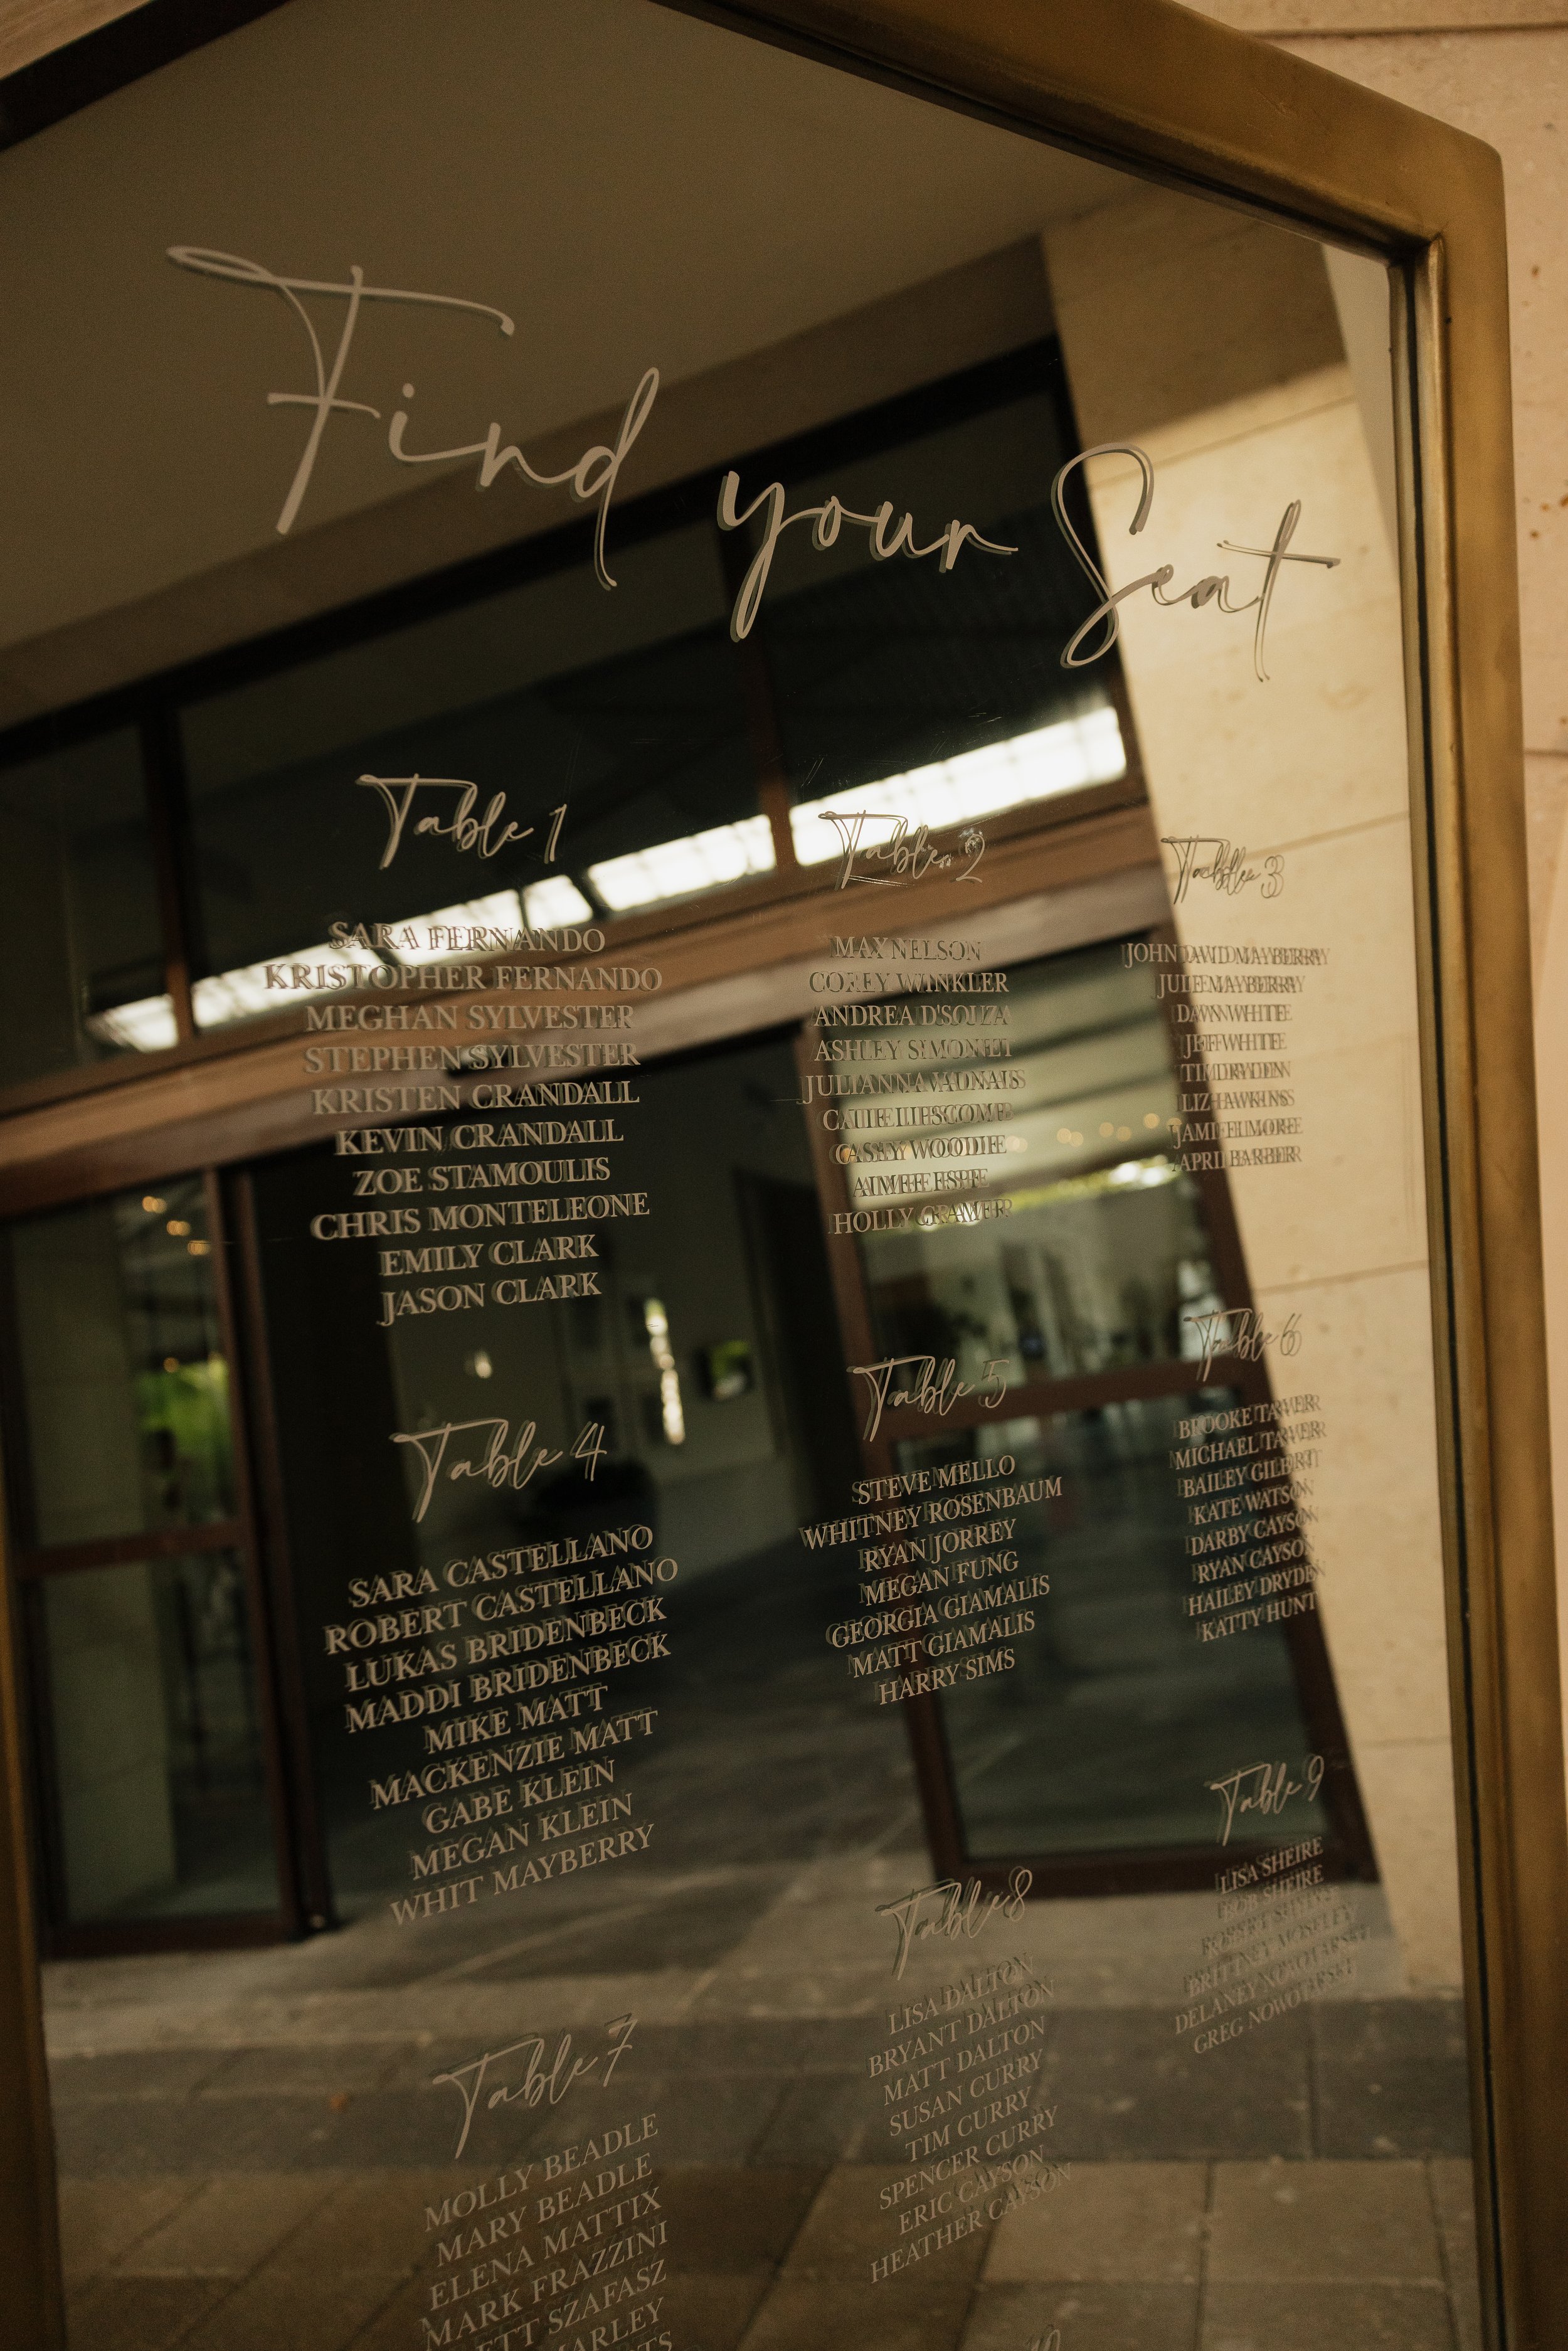 Find your Seat
Table 1
SARA FERNANDO
KRISTOPHER FERNANDO
MEGHAN SYLVESTER
STEPHEN SYLVESTER
KRISTEN CRANDALL
KEVIN CRANDALL
ZOE STAMOULIS
CHRIS MONTELEONE
EMILY CLARK
JASON CLARK
Table 2
MAX NELSON
COREY WINKLER
ANDREA D'SOUZA
ASHLEY SIMONEI
JULIANNA VADNAIS
CASEY WOODIE
AIMEE ESPE
HOLLY CRAMER
Table 3
JOHN DAVID MAYBERRY
JULIE MAYBERRY
DAWN WHITE
JEFF WHITE
TIM DRYDEN
LIZ HAWKINS
JAMIE ELMORE
APRIL BARBER
Table 4
SARA CASTELLANO
ROBERT CASTELLANO
LUKAS BRIDENBECK
MADDI BRIDENBECK
MIKE MATT
MACKENZIE MATT
GABE KLEIN
MEGAN KLEIN
WHIT MAYBERRY
Table 5
STEVE MELLO
WHITNEY ROSENBAUM
RYAN JORREY
MEGAN FUNG
GEORGIA GIAMALIS
MATT GIAMALIS
HARRY SIMS
Table 6
BROOKE TARVER
MICHAEL TARVER
BAILEY GILBERT
KATE WATSON
DARBY CAYSON
RYAN CAYSON
HAILEY DRYDEN
KATTY HUNT
Table 7
MOLLY BEADLE
MARY BEADLE
ELENA MATTIX
MARK FRAZZINI
SZAFASZ
Table 8
LISA DALTON
BRYANT DALTON
MATT DALTON
SUSAN CURRY
TIM CURRY
SPENCER CURRY
ERIC CAYSON
HEATHER CAYSON
Table 9
LISA SHEIRE
ROB SHEIRE
ROBERT SHEIRE
BRITTNEY MOSELEY
DELANEY NOWOTARSKI
GREG NOWOTARSKI